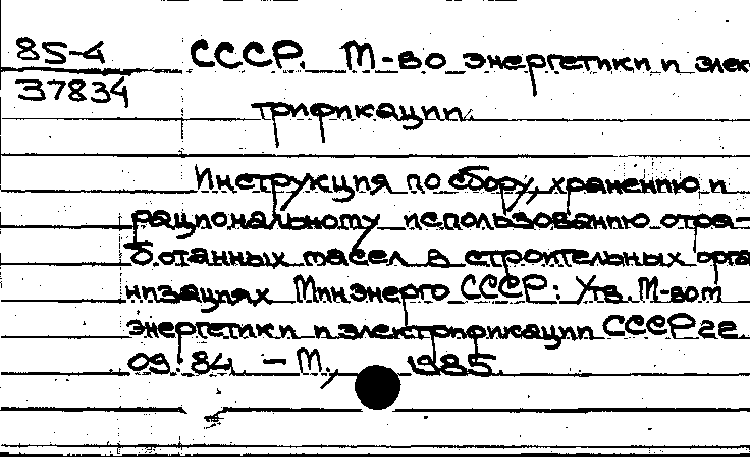 85-4
37834
СССР. М-во энергетики и элек
трификации.
Инструкция по сбору, хранению и
рациональному использованию отра-
ботанных масел в строительных орга
низациях Минэнерго СССР: Утв. М-вом
энергетики и электрификации СССР 22.
09.84. – М., 1985.